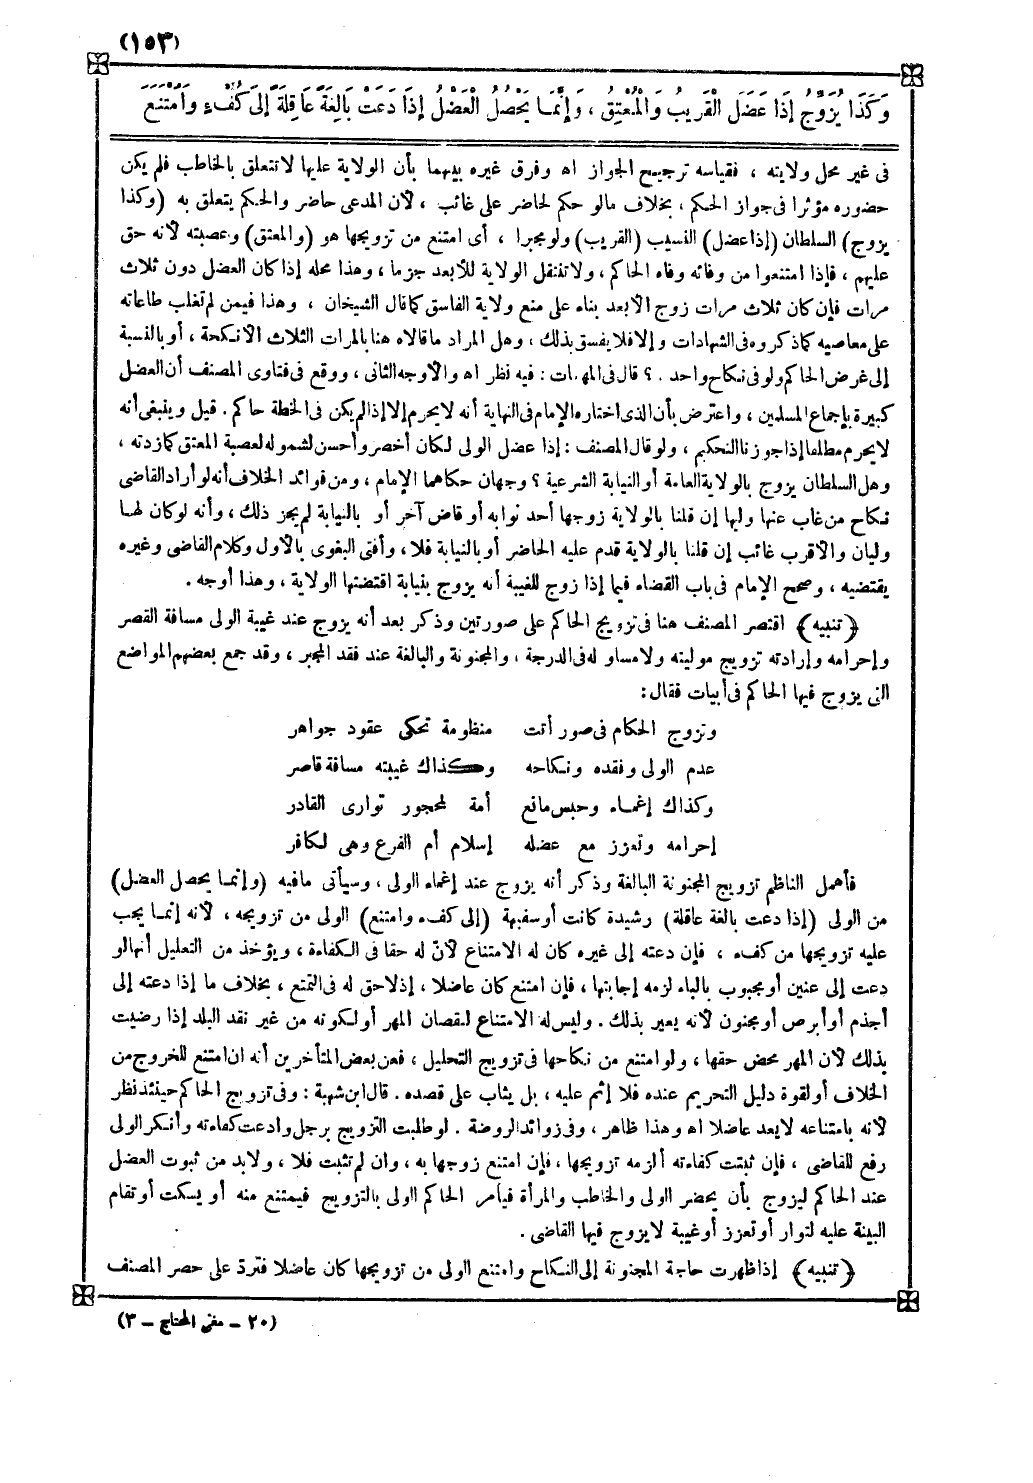 (١٥٣)
وَكَذَا يُزَوِّجُ إِذَا عَضَلَ الْقَرِيبُ وَالْمُعْتِقُ ، وَإِنَّمَا يَحْصُلُ الْعَضْلُ إِذَا دَعَتْ بَالِغَةٌ عَاقِلَةٌ إِلَى كُفْءٍ وَامْتَنَعَ
فى غير محل ولايته ، فقياسه ترجيح الجواز اه وفرق غيره بينهما بأن الولاية عليها لاتتعلق بالخاطب فلم يكن
حضوره مؤثرا فى جواز الحكم ، بخلاف مالو حكم لحاضر على غائب ، لأن المدعى حاضر والحكم يتعلق به (وكذا
يزوج) السلطان (إذا عضل) النسيب (القريب) ولو مجبرا ، أى امتنع من تزويجها هو (والمعتق) وعصبته لأنه حق
عليهم ، فإذا امتنعوا من وفائه وفاه الحاكم ، ولاتنتقل الولاية للأبعد جزما ، وهذا محله إذا كان العضل دون ثلاث
مرات فإن كان ثلاث مرات زوج الأبعد بناء على منع ولاية الفاسق كما قال الشيخان ، وهذا فيمن لم تغلب طاعاته
على معاصيه كما ذكروه فى الشهادات وإلا فلا يفسق بذلك ، وهل المراد ما قالاه هنا بالمرات الثلاث الأنكحة ، أو بالنسبة
إلى غرض الحاكم ولو فى نكاح واحد . ؟ قال فى المهمات : فيه نظر اه والأوجه الثانى ، ووقع فى فتاوى المصنف أن العضل
كبيرة بإجماع المسلمين ، واعترض بأن الذى اختاره الإمام فى النهاية أنه لايحرم إلا إذا لم يكن فى الخطة حاكم . قيل وينبغى أنه
لايحرم مطلقا إذا جوزنا التحكيم ، ولو قال المصنف : إذا عضل الولى لكان أخصر وأحسن لشموله لعصبة المعتق كما زدته ،
وهل السلطان يزوج بالولاية العامة أو النيابة الشرعية ؟ وجهان حكاهما الإمام ، ومن فوائد الخلاف أنه لو أراد القاضى
نكاح من غاب عنها وليها إن قلنا بالولاية زوجها أحد نوابه أو قاض آخر أو بالنيابة لم يجز ذلك ، وأنه لو كان لهـا
وليان والأقرب غائب إن قلنا بالولاية قدم عليه الحاضر أو بالنيابة فلا ، وأفتى البغوى بالأول وكلام القاضى وغيره
يقتضيه ، وصحح الإمام فى باب القضاء فيما إذا زوج للغيبة أنه يزوج بنيابة اقتضتها الولاية ، وهذا أوجه .
﴿تنبيه﴾ اقتصر المصنف هنا فى تزويج الحاكم على صورتين وذكر بعد أنه يزوج عند غيبة الولى مسافة القصر
وإحرامه وإرادته تزويج موليته ولا مساو له فى الدرجة ، والمجنونة والبالغة عند فقد المجبر ، وقد جمع بعضهم المواضع
التى يزوج فيها الحاكم فى أبيات فقال :
وتزوج الحكام فى صور أتت    منظومة تحكى عقود جواهر
عدم الولى وفقده ونكاحه    وكذاك غيبته مسافة قاصر
وكذاك إغماء وحبس مانع    أمة لمحجور توارى القادر
إحرامه وتعزز مع عضله    إسلام أم الفرع وهى لكافر
فأهمل الناظم تزويج المجنونة البالغة وذكر أنه يزوج عند إغماء الولى ، وسيأتى مافيه (وإنمـا يحصل العضل)
من الولى (إذا دعت بالغة عاقلة) رشيدة كانت أو سفيهة (إلى كفء وامتنع) الولى من تزويجه ، لأنه إنمـا يجب
عليه تزويجها من كفء ، فإن دعته إلى غيره كان له الامتناع لأنّ له حقا فى الكفاءة ، ويؤخذ من التعليل أنها لو
دعت إلى عنين أو مجبوب بالباء لزمه إجابتها ، فإن امتنع كان عاضلا ، إذ لاحق له فى التمتع ، بخلاف ما إذا دعته إلى
أجذم أو أبرص أو مجنون لأنه يعير بذلك . وليس له الامتناع لنقصان المهر أو لكونه من غير نقد البلد إذا رضيت
بذلك لأن المهر محض حقها ، ولو امتنع من نكاحها فى تزويج التحليل ، فعن بعض المتأخرين أنه ان امتنع للخروج من
الخلاف أو لقوة دليل التحريم عنده فلا إثم عليه ، بل يثاب على قصده . قال ابن شهبة : وفى تزويج الحاكم حينئذ نظر
لأنه بامتناعه لايعد عاضلا اه وهذا ظاهر ، وفى زوائد الروضة . لو طلبت التزويج برجل وادعت كفاءته وأنكر الولى
رفع للقاضى ، فإن ثبتت كفاءته ألزمه تزويجها ، فإن امتنع زوجها به ، وان لم تثبت فلا ، ولابد من ثبوت العضل
عند الحاكم ليزوج بأن يحضر الولى والخاطب والمرأة فيأمر الحاكم الولى بالتزويج فيمتنع منه أو يسكت أو تقام
البينة عليه لتوار أو تعزز أو غيبة لايزوج فيها القاضى .
﴿تنبيه﴾ إذا ظهرت حاجة المجنونة إلى النكاح وامتنع الولى من تزويجها كان عاضلا فترد على حصر المصنف
(٢٠ - مغنى المحتاج - ٣)